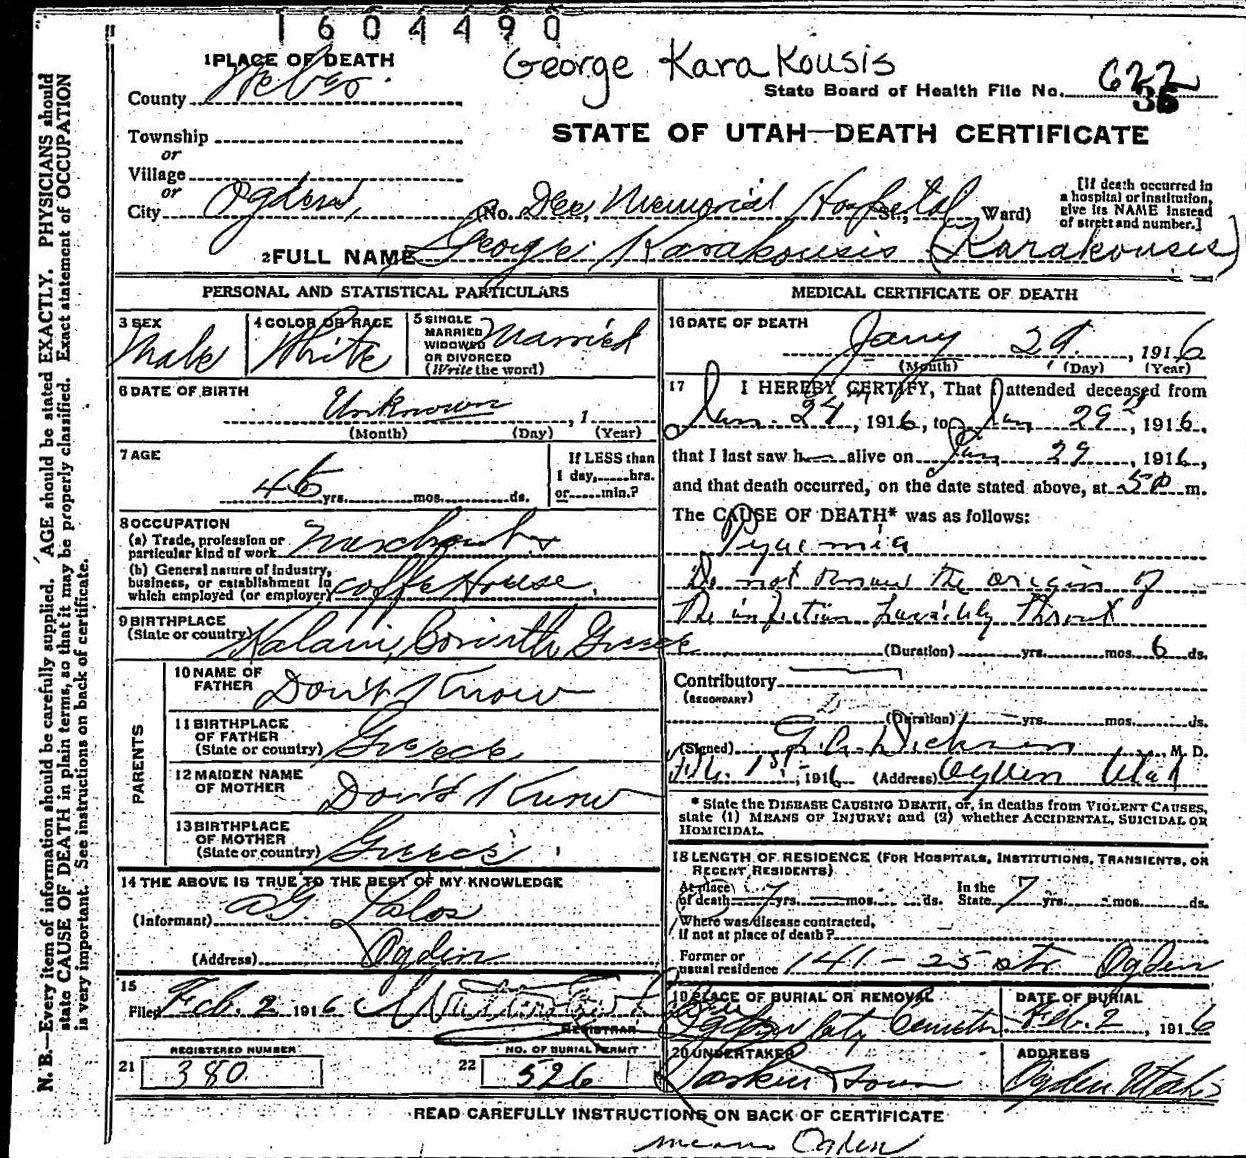 1604490
George Karakousis
1 PLACE OF DEATH
County Weber
State Board of Health File No. 622
36
STATE OF UTAH—DEATH CERTIFICATE
Township
or
Village
or
City Ogden, (No. Dee Memorial Hospital St., Ward)
[If death occurred in a hospital or institution, give its NAME instead of street and number.]
2 FULL NAME George Karakousis (Karakousis)
PERSONAL AND STATISTICAL PARTICULARS
3 SEX Male
4 COLOR OR RACE White
5 SINGLE MARRIED WIDOWED OR DIVORCED (Write the word) Married
6 DATE OF BIRTH Unknown, 1
(Month) (Day) (Year)
7 AGE 46 yrs. mos. ds.
If LESS than 1 day, hrs. or min.?
8 OCCUPATION
(a) Trade, profession or particular kind of work Merchant
(b) General nature of industry, business, or establishment in which employed (or employer) coffe House
9 BIRTHPLACE (State or country) Corinth, Greece
PARENTS
10 NAME OF FATHER Don't Know
11 BIRTHPLACE OF FATHER (State or country) Greece
12 MAIDEN NAME OF MOTHER Don't Know
13 BIRTHPLACE OF MOTHER (State or country) Greece
14 THE ABOVE IS TRUE TO THE BEST OF MY KNOWLEDGE
(Informant) A G Lalos
(Address) Ogden
15
Filed Feb. 2 1916
REGISTRAR
21 REGISTERED NUMBER 380
22 NO. OF BURIAL PERMIT 526
MEDICAL CERTIFICATE OF DEATH
16 DATE OF DEATH
Jany 29, 1916
(Month) (Day) (Year)
17 I HEREBY CERTIFY, That I attended deceased from
Jan. 24, 1916, to Jan 29, 1916,
that I last saw h alive on Jan 29, 1916,
and that death occurred, on the date stated above, at 5 P m.
The CAUSE OF DEATH* was as follows:
Pyaemia
Do not know the origin of
the infection Possibly throat
(Duration) yrs. mos. 6 ds.
Contributory
(SECONDARY)
(Duration) yrs. mos. ds.
(Signed) Dickson, M. D.
Feb. 1st, 1916 (Address) Ogden Utah
* State the DISEASE CAUSING DEATH, or, in deaths from VIOLENT CAUSES, state (1) MEANS OF INJURY; and (2) whether ACCIDENTAL, SUICIDAL OR HOMICIDAL.
18 LENGTH OF RESIDENCE (FOR HOSPITALS, INSTITUTIONS, TRANSIENTS, OR RECENT RESIDENTS)
At place of death 7 yrs. mos. ds. In the State 7 yrs. mos. ds.
Where was disease contracted, if not at place of death?
Former or usual residence 141 - 25 str Ogden
19 PLACE OF BURIAL OR REMOVAL Ogden City Cemetery
DATE OF BURIAL Feb. 2, 1916
20 UNDERTAKER Larkin & Sons
ADDRESS Ogden Utah
READ CAREFULLY INSTRUCTIONS ON BACK OF CERTIFICATE
Ogden
N. B.—Every item of information should be carefully supplied. AGE should be stated EXACTLY. PHYSICIANS should
state CAUSE OF DEATH in plain terms, so that it may be properly classified. Exact statement of OCCUPATION
is very important. See instructions on back of certificate.